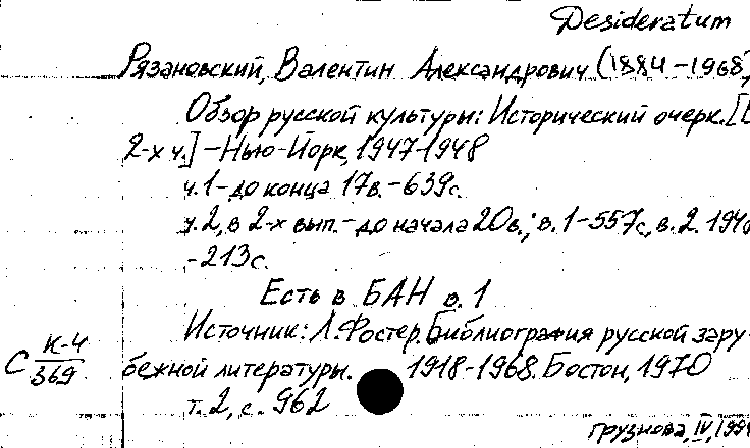 Desideratum
Рязановский, Валентин Александрович (1884-1968,
Обзор русской культуры: Исторический очерк. [В
2-х ч.] - Нью-Йорк, 1947-1948
ч. 1 - до конца 17в. - 639с.
ч. 2, в 2-х вып. - до начала 20в.; в. 1-557с, в. 2. 194
-213с.
Есть в БАН в. 1
Источник: Л. Фостер. Библиография русской зару-
бежной литературы. 1918-1968. Бостон, 1970
т. 2, с. 962
С К-4
369
Грузнова, IV, 199